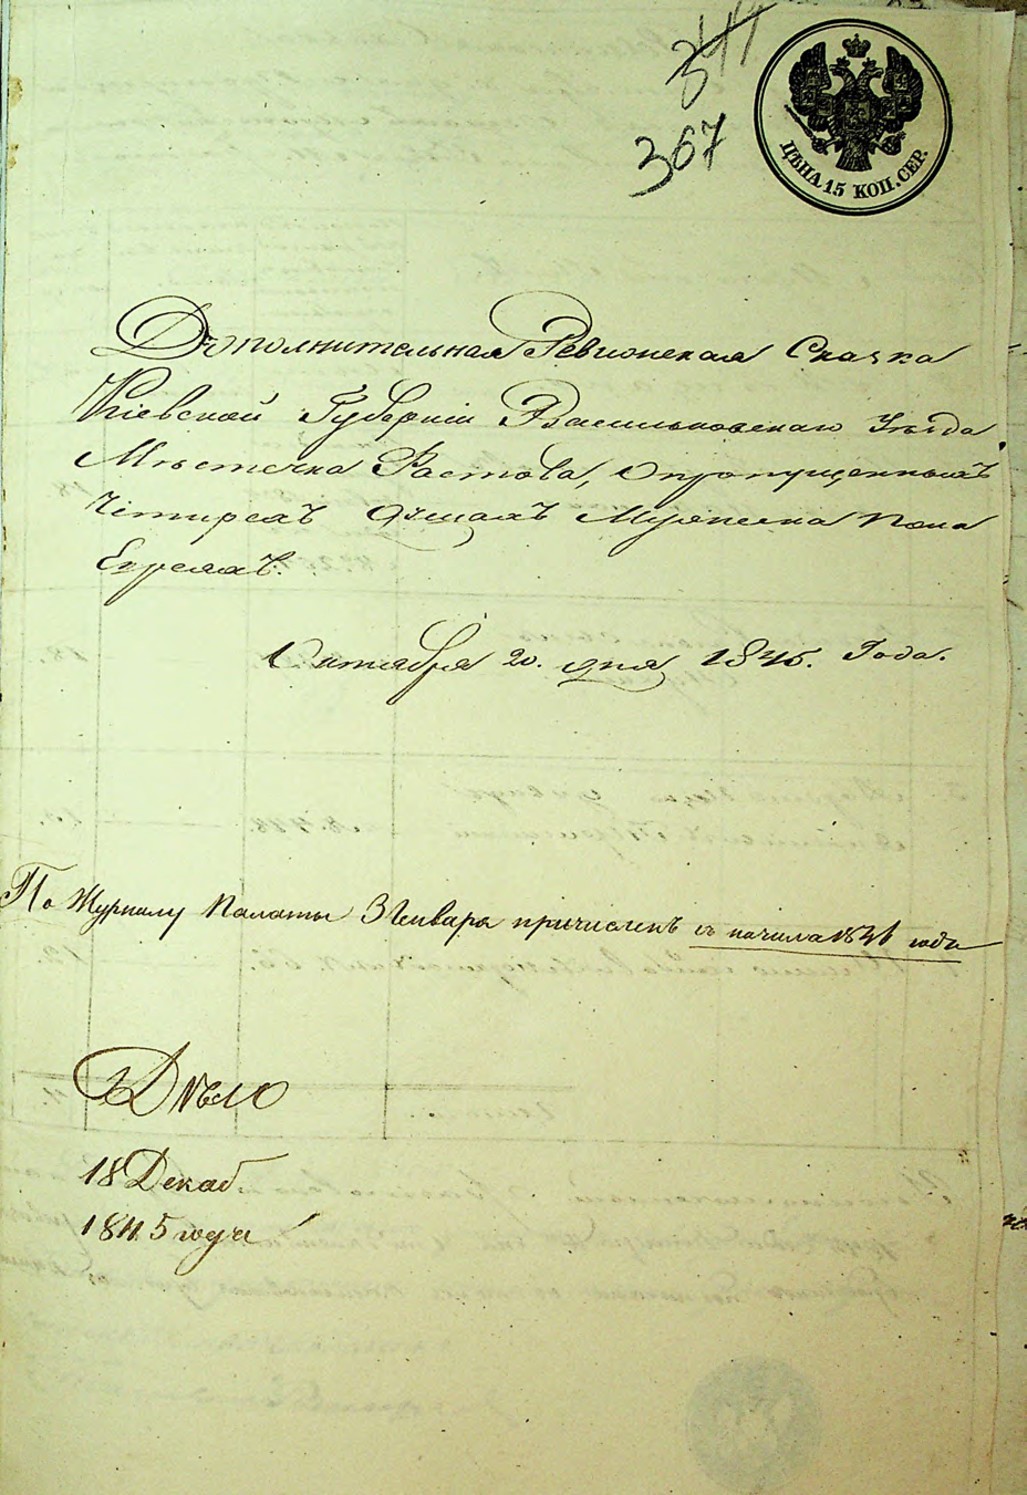 344
367
ЦѢНА 15 КОП. СЕР.
Дополнительная Ревионская Сказка
Кіевской Губерніи Васильковскаго Уѣзда,
Мѣстечка Фастова, О пропущенныхъ
Четырехъ Душахъ Мужеска Пола
Евреяхъ.
Октября 20. дня 1845. Года.
По Журналу Палаты 3 Генваря причисленъ съ начала 1846 года
Дѣло
18 Декаб
1845 года